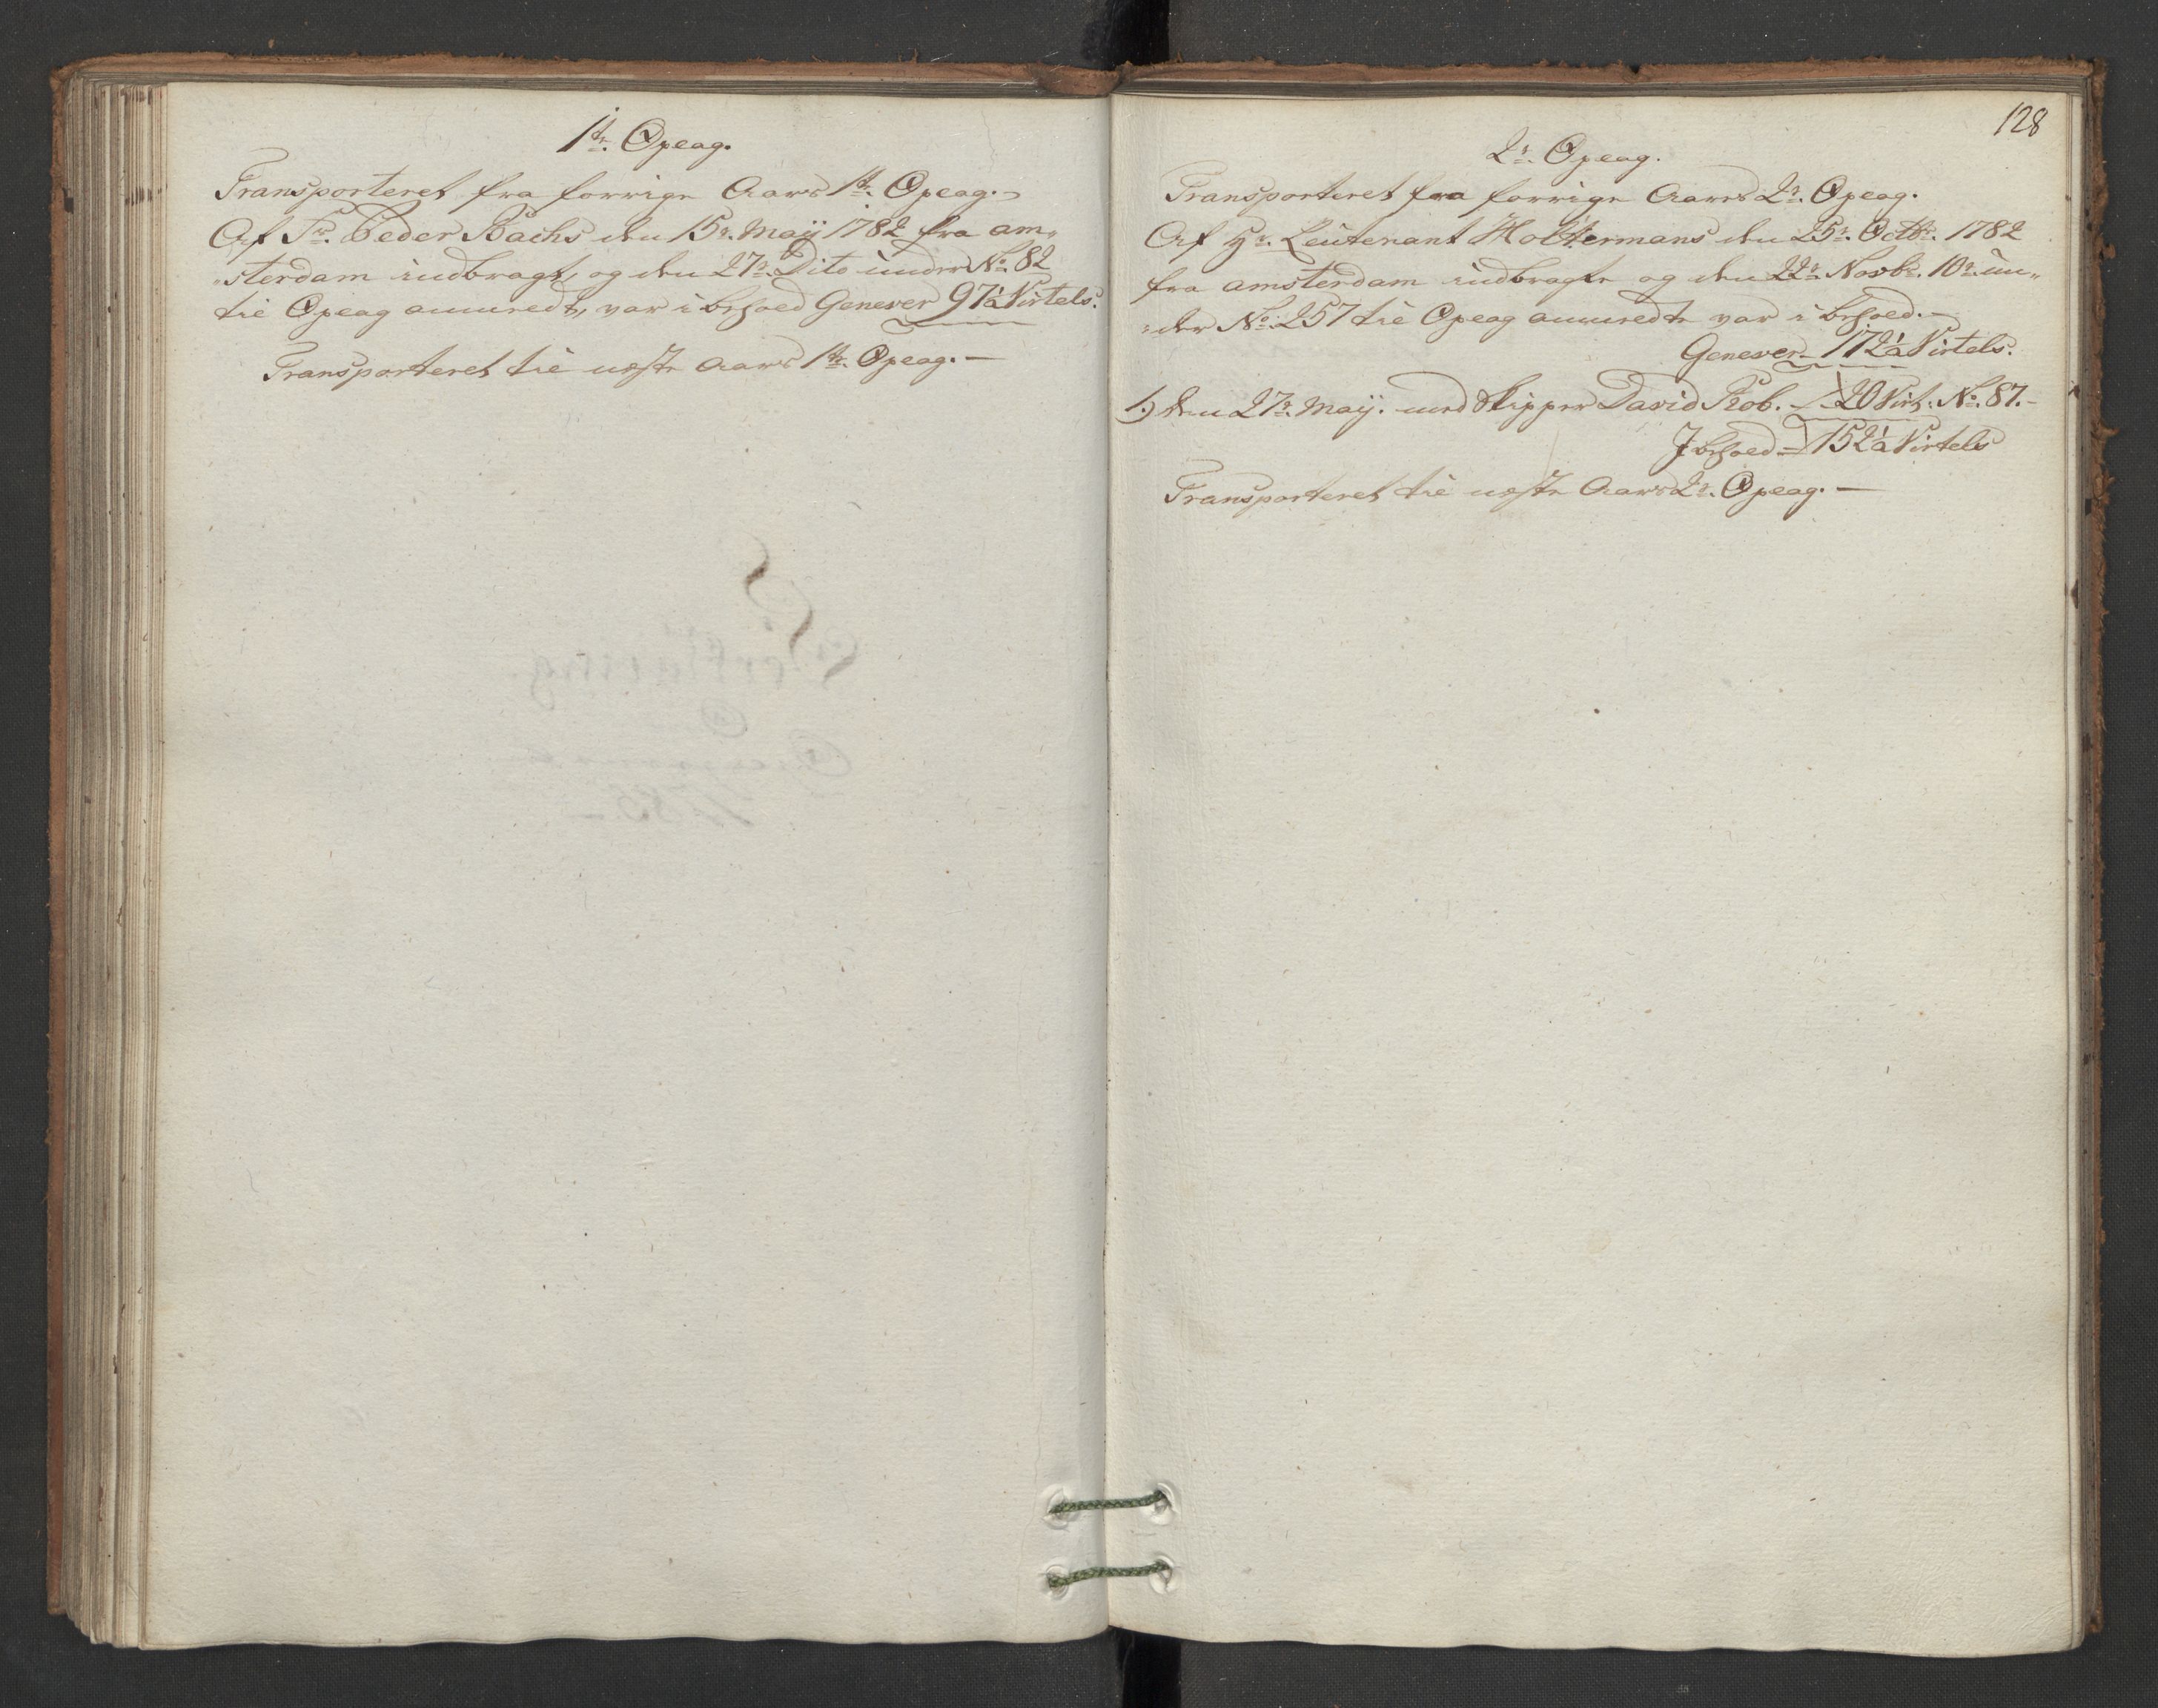 1te. Oplag.
Transporteret fra forrige Aars 1te. Oplag.
Af Sr. Peder Bachs den 15de. Maÿ 1782 fra am-
sterdam indbragt, og den 27de. Dito under No. 82
til Oplag anmeldt, var i behold Genever 97½ Virtels.
Transporteret til næste Aars 1te. Oplag. —
128
2de. Oplag.
Transporteret fra forrige Aars 2de. Oplag.
Af Hr. Leutenant Holtermans den 25de. Octbr. 1782
fra amsterdam indbragte og den 22de Novbr. un-
der No. 257 til Oplag anmeldte var i behold. —
Genever - 172½ Virtels.
1.) den 27de. Maÿ. med Skipper David Rob. - 20 Virt: No. 87. -
J behold = 152½ Virtels
Transporteret til næste Aars 2de. Oplag. —